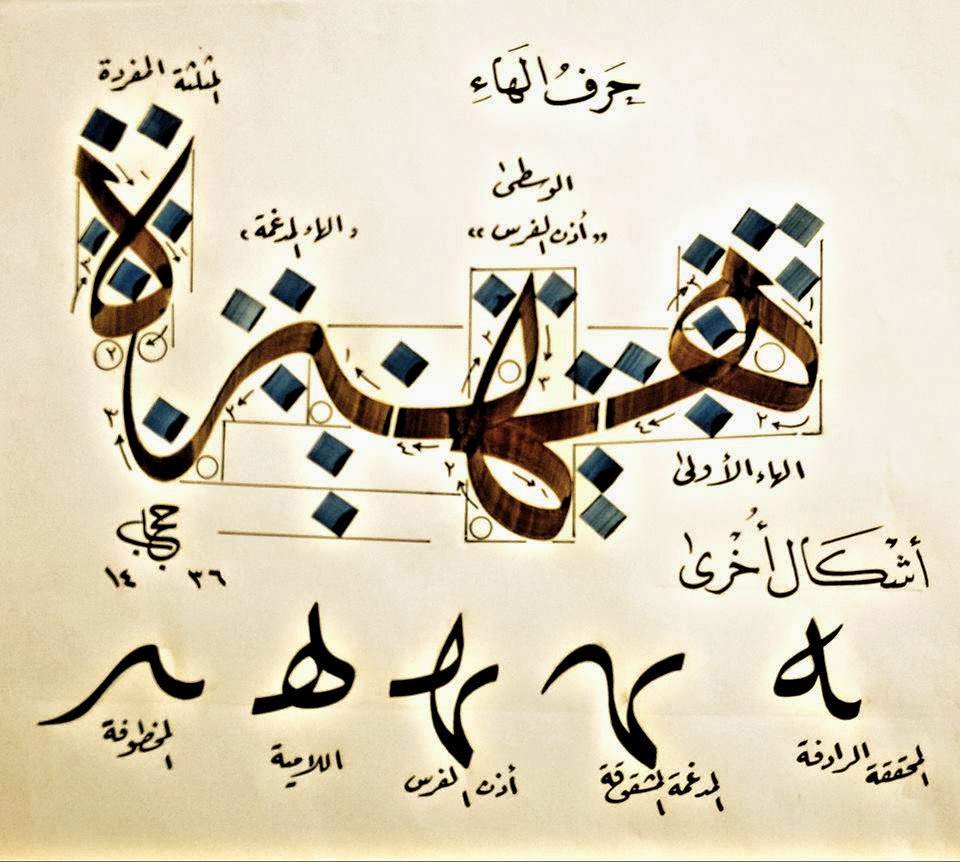 حَرفُ الهَاءِ
المثلثة المفردة
الوسطى
«أذن الفرس»
«الهاء المدغمة»
الهاء الأولى
أشْكَال أُخْرى
١٤ ٣٦
المحققة الرادفة
المدغمة المشقوقة
أذن الفرس
اللامية
المخطوفة